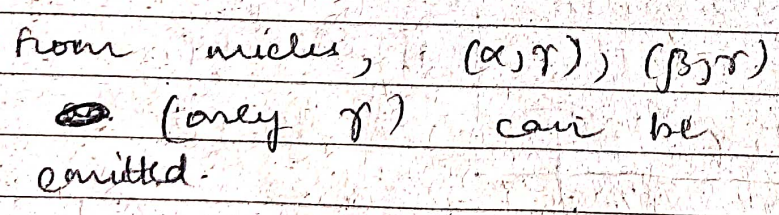 from nucleus, (α, γ), (β, γ)
(only γ) can be
emitted.